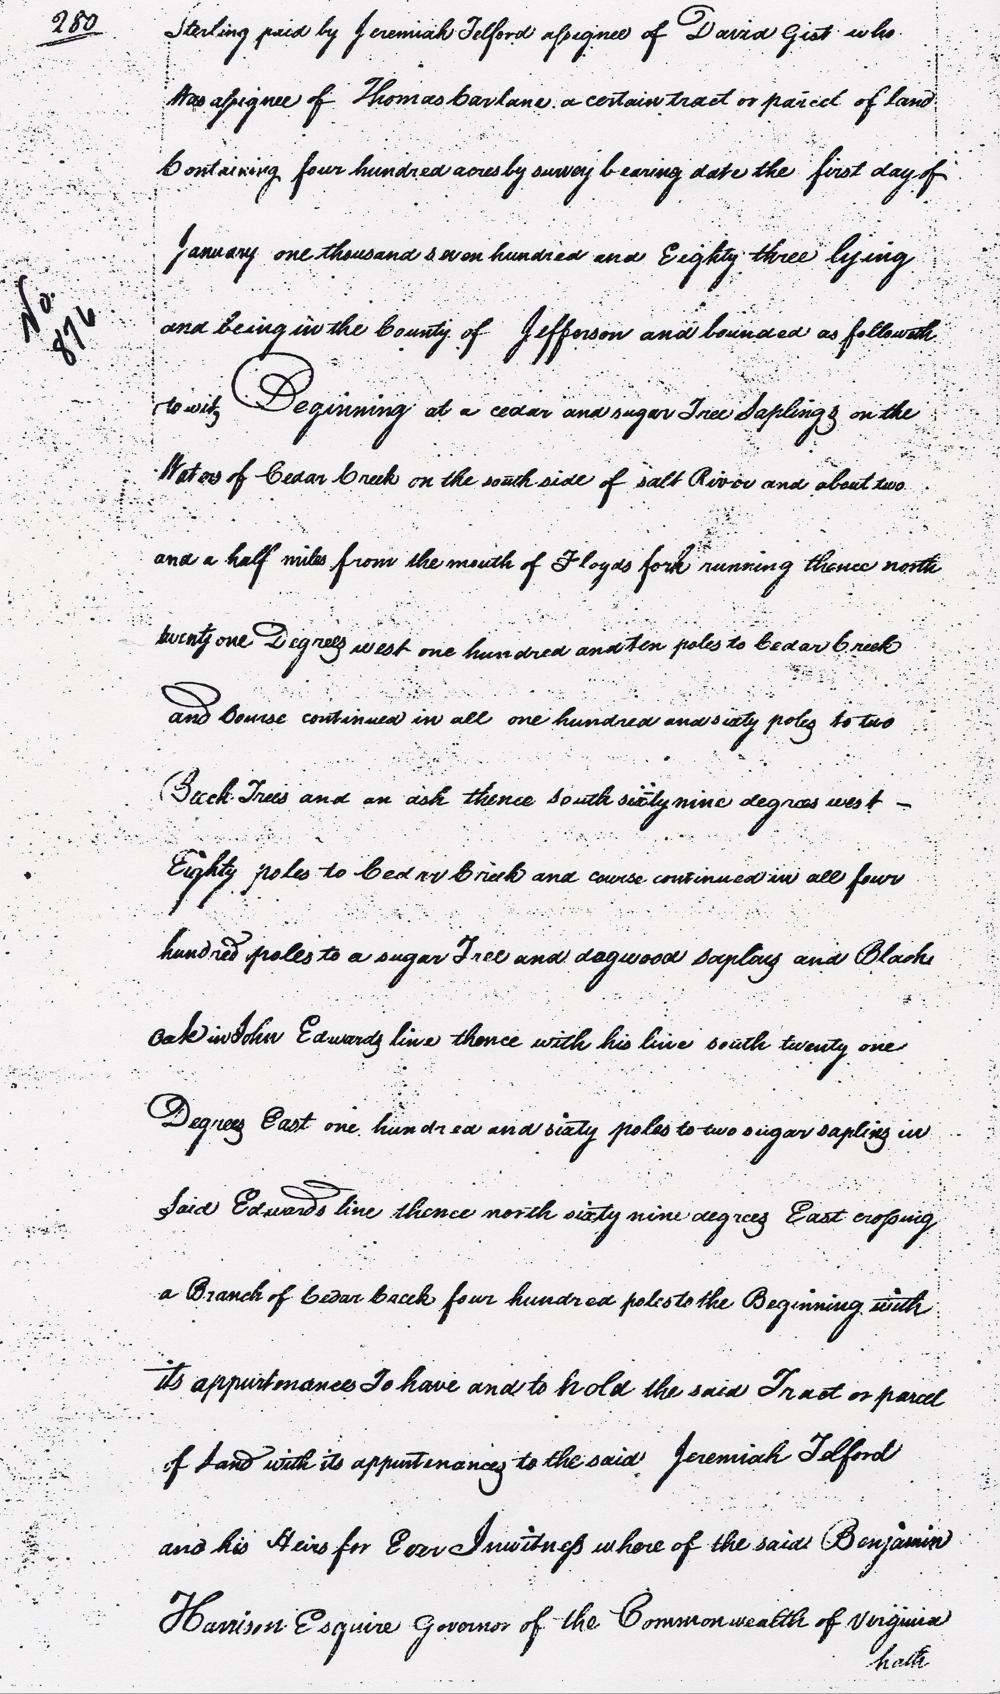 280
Sterling paid by Jeremiah Telford assignee of David Gist who
was assignee of Thomas Carlane a certain tract or parcel of land
Containing four hundred acres by survey bearing date the first day of
January one thousand seven hundred and Eighty three lying
No. 876
and being in the County of Jefferson and bounded as followeth
to wit, Beginning at a cedar and sugar Tree Saplings on the
Waters of Cedar Creek on the south side of salt River and about two
and a half miles from the mouth of Floyds fork running thence north
twenty one Degrees west one hundred and ten poles to Cedar Creek
and Course continued in all one hundred and sixty poles to two
Beech Trees and an ash thence South sixty nine degrees west –
Eighty poles to Cedar Creek and course continued in all four
hundred poles to a sugar Tree and dogwood saplins and Black
oak in John Edwards line thence with his line south twenty one
Degrees East one hundred and sixty poles to two sugar saplins in
Said Edwards line thence north sixty nine degrees East crossing
a Branch of Cedar Creek four hundred poles to the Beginning with
its appurtenances To have and to hold the said Tract or parcel
of Land with its appurtenances to the said Jeremiah Telford
and his Heirs for Ever In witness where of the said Benjamin
Harrison Esquire Governor of the Commonwealth of Virginia
hath